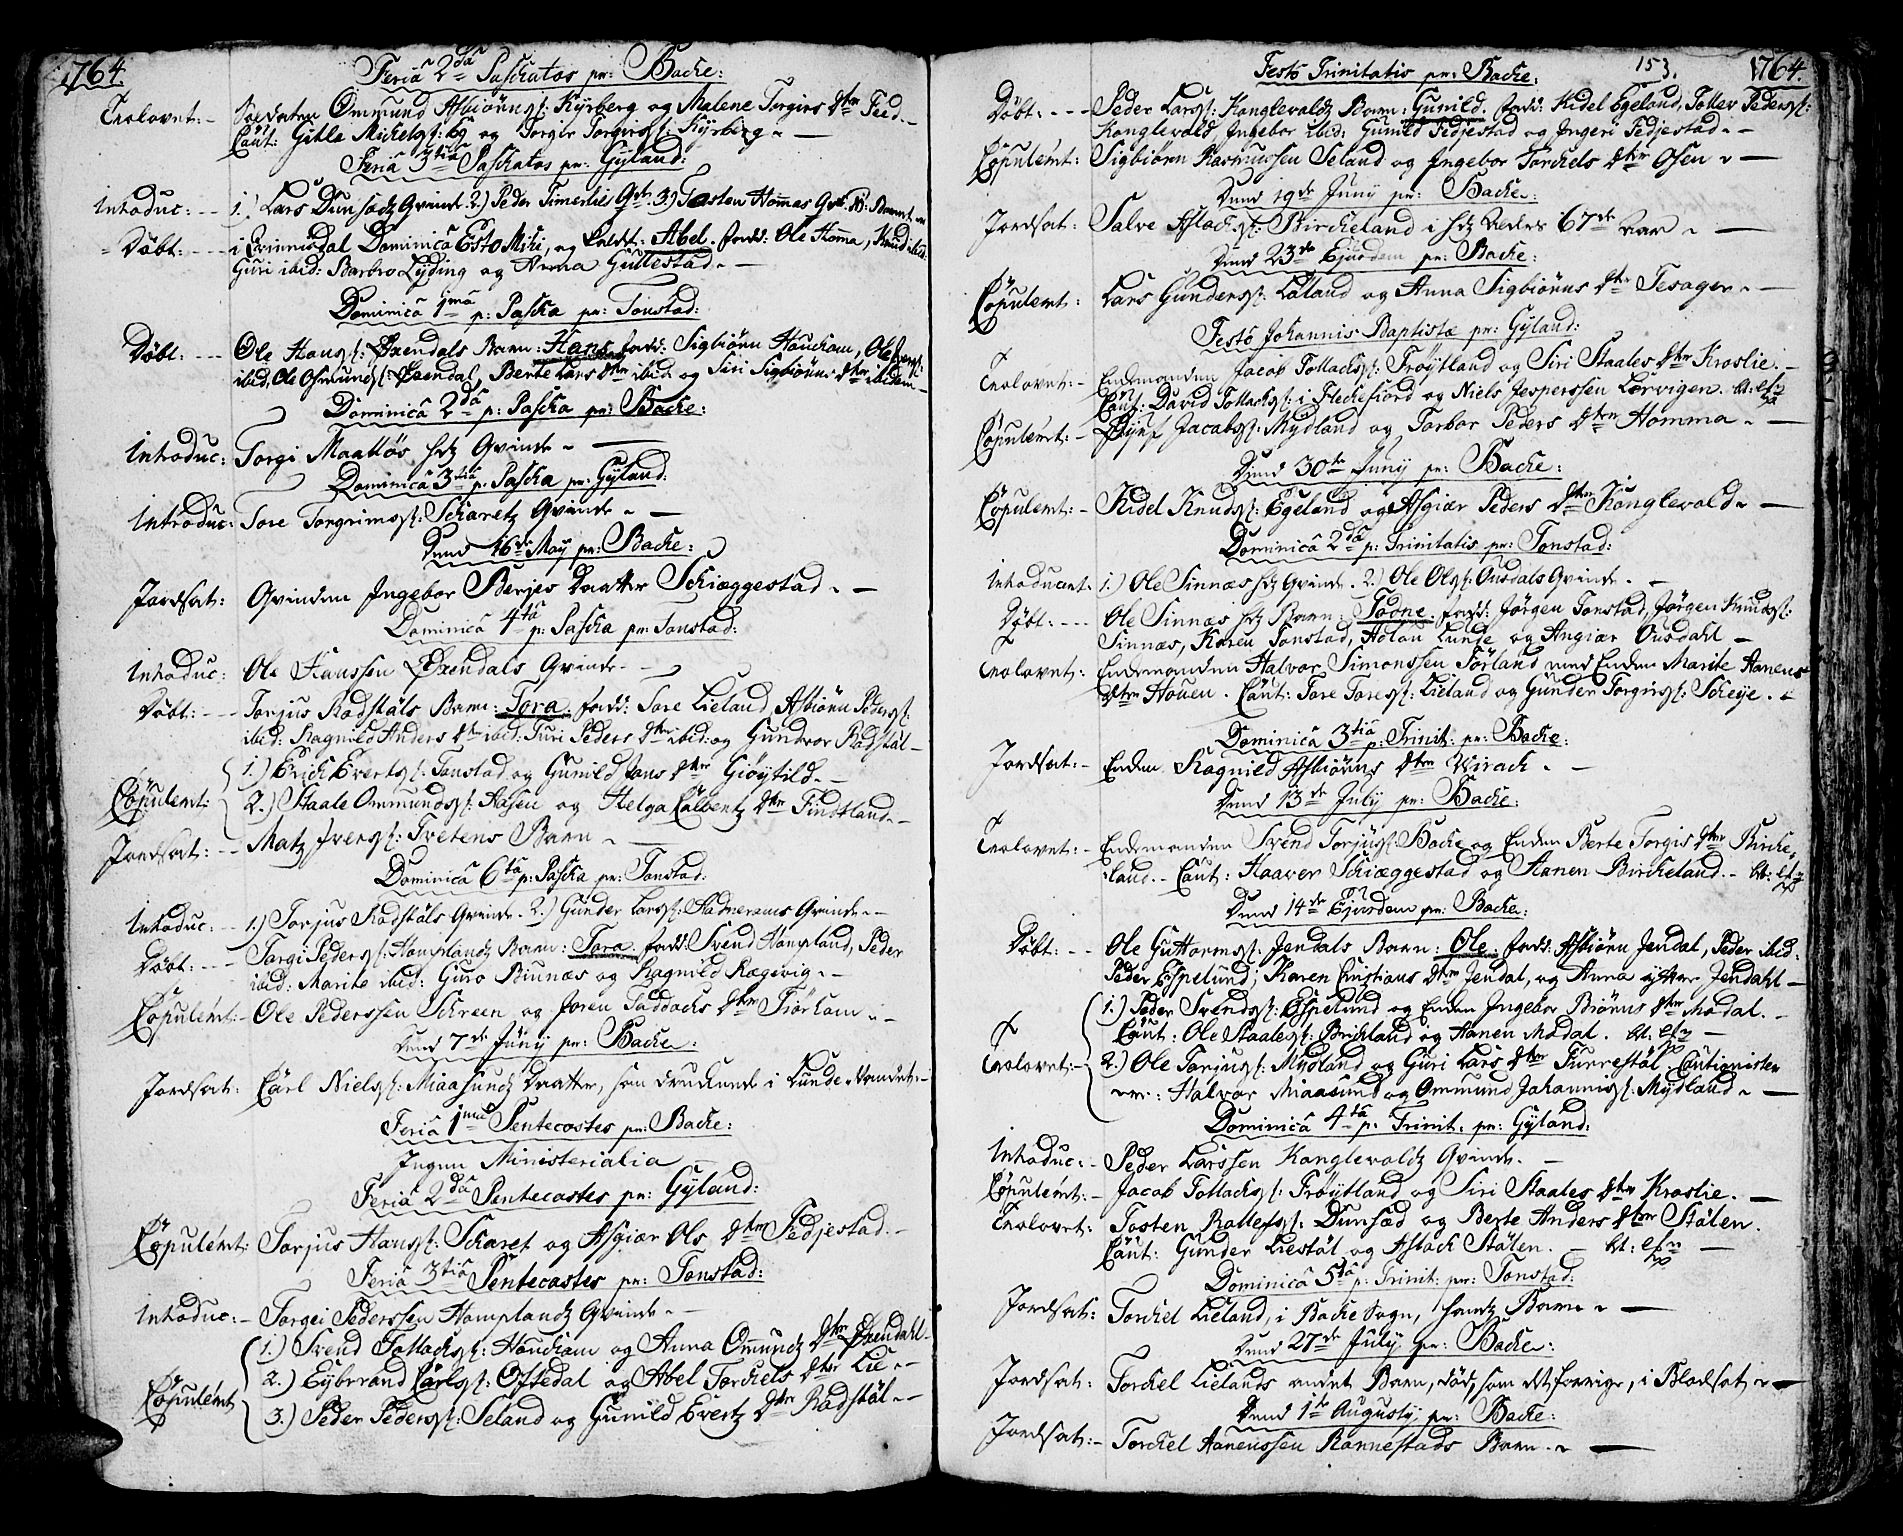 1764.
Feriâ 2dâ Paschatos pr: Backe:
Trolovet: - Soldaten Ommund Asbiörns: Kyrberg og Malene Torgirs dtr Feed.
Caut: Gitle Michels: og Torgir Torgirs: Kyrberg. -
Feriâ 3tiâ Paschatos pr: Gyland:
Introduc: - - 1.) Lars Dunsadz Qvinde. 2.) Peder Timerlies Qv: 3.) Tosten Hommas
Döbt: - - i Qvinnisdal Dominicâ Esto Mihi, og kaldt: Abel. fadd: Ole Homa, Knud ibid:
Guri ibid: Barbro Lyding og Anna Gullestad. -
Dominicâ 1mâ p: Pascha pr: Tonstad:
Döbt: - - - Ole Hans: Øxendals Barn: Hans. fadd: Sigbiörn Houckom, Ole
ibid, Ole Osmunds: Øxendal, Berte Lars dtr ibid og Siri Sigbiörns dtr ibidem
Dominicâ 2dâ p: Pascha pr: Backe:
Introduc: Torgi Maalös hs Qvinde. -
Dominicâ 3tiâ p: Pascha pr: Gyland:
Introduc: Tore Torgrims: Schäretz Qvinde. -
Dend 16de May pr: Backe:
Jordsat: Qvinden Ingebor Berjes Daatter Schiæggestad. -
Dominicâ 4tâ p: Pascha pr: Tonstad:
Introduc: Ole Hanssen Øxendals Qvinde. -
Döbt: - - Torjus Rodstöls Barn: Tora. fadd: Tore Lieland, Asbiörn Peders:
ibid: Ragnild Anders dtr ibid: Turi Peders dtr ibid: og Gundvor Rodstöl -
Copulerit: 1.) Erick Everts: Tonstad og Gunild Jens dtr Giöytild. -
2.) Staale Ommunds: Aasen og Helga dtr Findtland. -
Jordsat: - - Matz Ivers: Tvetens Barn. -
Dominicâ 6tâ p: Pascha pr: Tonstad:
Introduc: - 1.) Torjus Rodstöls Qvinde. 2.) Gunder Lars: Qvinde. -
Döbt: - - Torgi Peders: Hompландz Barn: Tora. fadd: Svend Hompland, Peder
ibid: Marite ibid: Guro Biunæs og Ragnild Rægevig. -
Copulerit: - Ole Pederssen Schreen og Joren Taddachs dtr Fiörham. -
Dend 7de Junij pr: Backe:
Jordsat: Carl Niels: Miaasundz Daatter, som druknede i Lunde Vandet. -
Feriâ 1mâ Pentecostes pr: Backe:
Ingen Ministerialia
Feriâ 2dâ Pentecostes pr: Gyland:
Copulerit: Torjus Hans: Schäret og Asgiær Ols dtr Fedjestad. -
Feriâ 3tiâ Pentecostes pr: Tonstad:
Introduc: - Torgei Pederssen Homplandz Qvinde. -
Copulerit 1.) Svend Tollachs: Houckam og Anna Ommundz dtr Øxendahl -
2.) Eybrand Carls: Oftedal og Abel Torckels dtr Lie. -
3.) Peder Peders: Seland og Gunild Evertz dtr Rodstöl. -
153. 1764.
Festo Trinitatis pr: Backe:
Döbt: - - - Peder Lars: Konglevoldz Barn: Gunild. fadd: Kidel Egeland, Tollev Peders:
Konglevold, Ingebor ibid: Gunild Fedjestad og Ingeri Fedjestad. -
Copulerit: Sigbiörn Rasmussen Seland og Ingebor Torckels dtr Osen. -
Dend 19de Junij pr: Backe:
Jordsat: Salve Aslachs: Birckeland i hs Alders 67de Aar. -
Dend 23de Ejusdem pr: Backe:
Copulerit: Lars Gunders: Laland og Anna Sigbiörns dtr Tesager. -
Festo Johannis Baptistæ pr: Gyland:
Trolovet: - Enckemanden Jacob Tollachs: Fröytland og Siri Staales dtr Kroslie. -
Caut: David Tollachs: i Fleckefiord og Niels Jesperssen Lervigen.
Copulerit: - Jacobs: Mydland og Torbor Peders dtr Homma. -
Dend 30te Junij pr: Backe:
Copulerit: - Kidel Knuds: Egeland og Asgiær Peders dtr Konglevold. -
Dominicâ 2dâ p: Trinitatis pr: Tonstad:
Introducert: 1.) Ole Sinnæs hs Qvinde. 2.) Ole Ols: Ousdals Qvinde. -
Döbt: - - - Ole Sinnæs hs Barn: Tone. fadd: Jörgen Tonstad, Jörgen Knuds:
Sinnæs, Karen Tonstad, Lunde og Angiær Ousdahl -
Trolovet: Enckemanden Halvor Simonssen Förland med Encken Marite Aanens
dtr Houen. Caut: Tore Tores: Lieland og Gunder Torgirs: Scheye. -
Dominicâ 3tiâ p: Trinit: pr: Backe:
Jordsat: - Encken Ragnild Asbiörns dtr Virack. -
Dend 13de July pr: Backe:
Trolovet: - Enckemanden Svend Torjus: Backe og Encken Berte Torgis dtr Bircke-
land. - Caut: Haaver Schiæggestad og Aanen Birckeland. -
Dend 14de Ejusdem pr: Backe:
Döbt: - - Ole Guttorms: Jendals Barn: Ole. fadd: Asbiörn Jendal, Peder ibid:
Peder Espelund, Karen Christians dtr Jendal, og Anna Jendahl -
Trolovet: - 1.) Peder Svends: Espelund og Encken Ingebor Biörns dtr Modal. -
Caut: Ole Staales: Birckland og Aanen Modal.
2.) Ole Torjus: Mydland og Guri Lars dtr Furrestöl. Cautionister
er: Halvor Miaasund og Ommund Johannis: Mydland. -
Dominicâ 4tâ p: Trinit. pr: Gyland:
Introduc: - Peder Larssen Konglevoldz Qvinde. -
Copulerit: - Jacob Tollachs: Fröytland og Siri Staales dtr Kroslie. -
Trolovet: Tosten Rollefs: Dunsæd og Berte Anders dtr Stölen.
Caut: Gunder Liestöl og Aslack Stölen. -
Dominicâ 5tâ p: Trinit: pr: Tonstad:
Jordsat: Torckel Lieland, i Backe Sogn, hans Barn. -
Dend 27de July pr: Backe:
Jordsat: Torckel Lielands andet Barn, död, som det forrige, i Blodsot. -
Dend 1te Augustij pr: Backe:
Jordsat: - Torckel Aanenssen Rannestads Barn. -